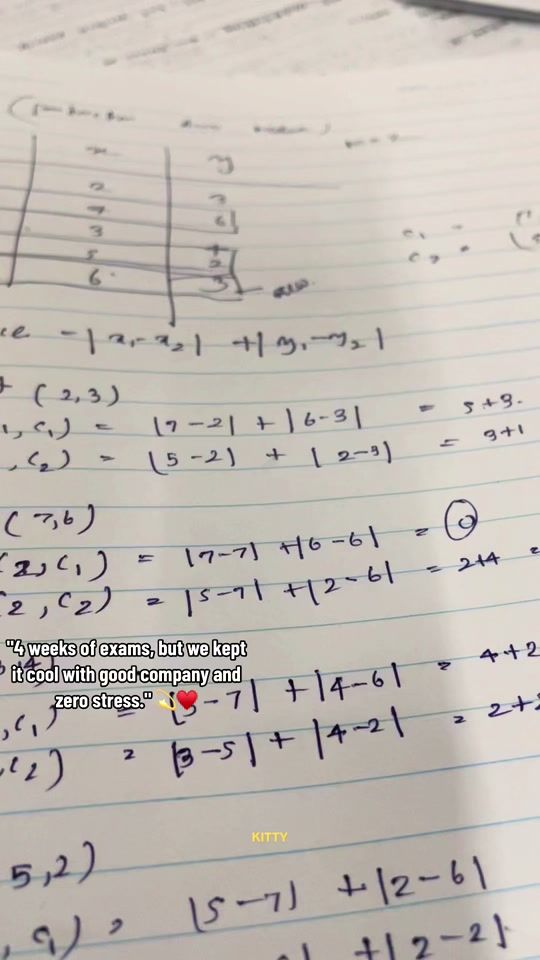 x y
2 3
7 6
3 4
5 2
6 3
- |x₁ - x₂| + |y₁ - y₂|
(2,3)
, c₁) = |7-2| + |6-3| = 5+3.
, c₂) = |5-2| + |2-3| = 3+1
(7,6)
2, c₁) = |7-7| + |6-6| = 0
2, c₂) = |5-7| + |2-6| = 2+4 =
"4 weeks of exams, but we kept
it cool with good company and
zero stress." 💫♥️
, c₁) = |3-7| + |4-6| = 4+2
c₂) = |3-5| + |4-2| = 2+2
KITTY
5,2)
, c₁) = |5-7| + |2-6|
+ |2-2|